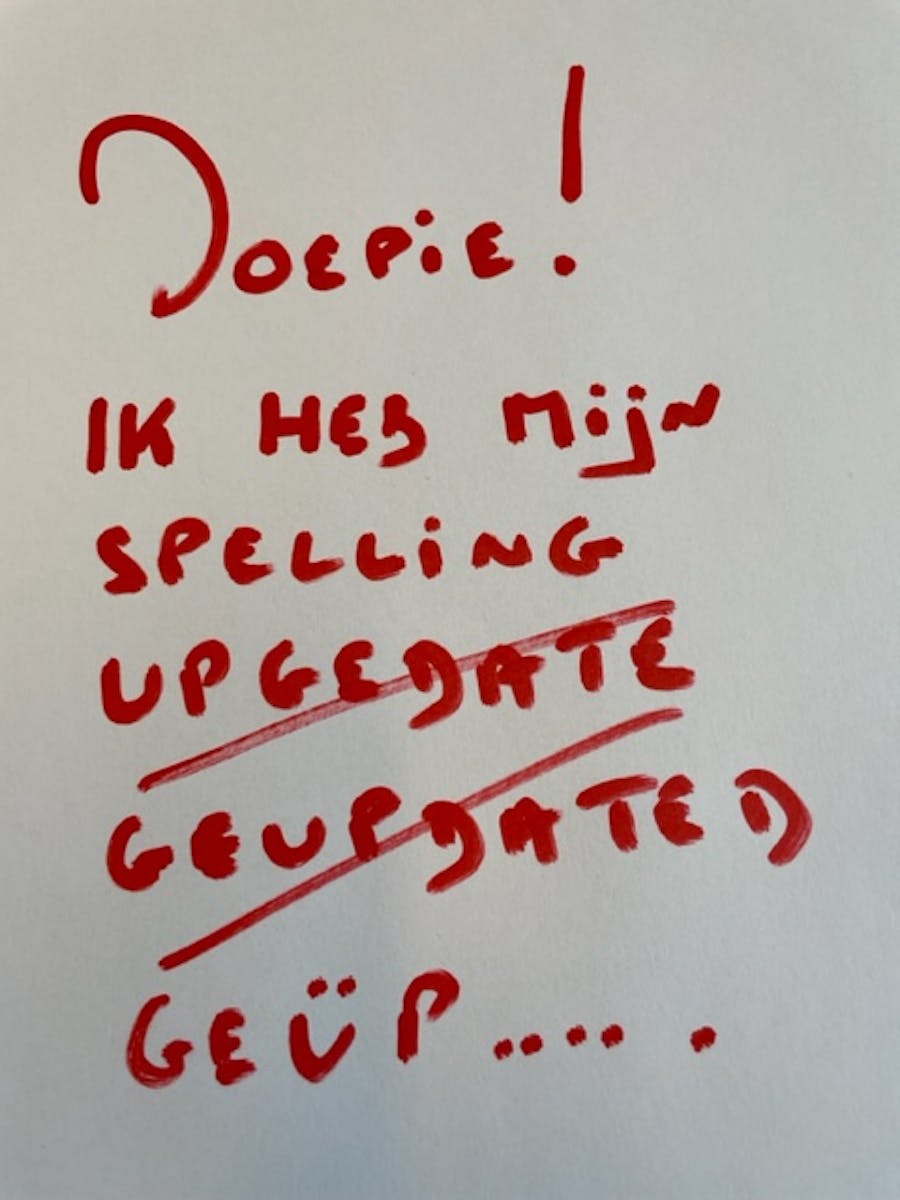 Joepie!
IK HEB Mijn
SPELLiNG
UPGEDATE
GEUPDATED
GEÜP.... .